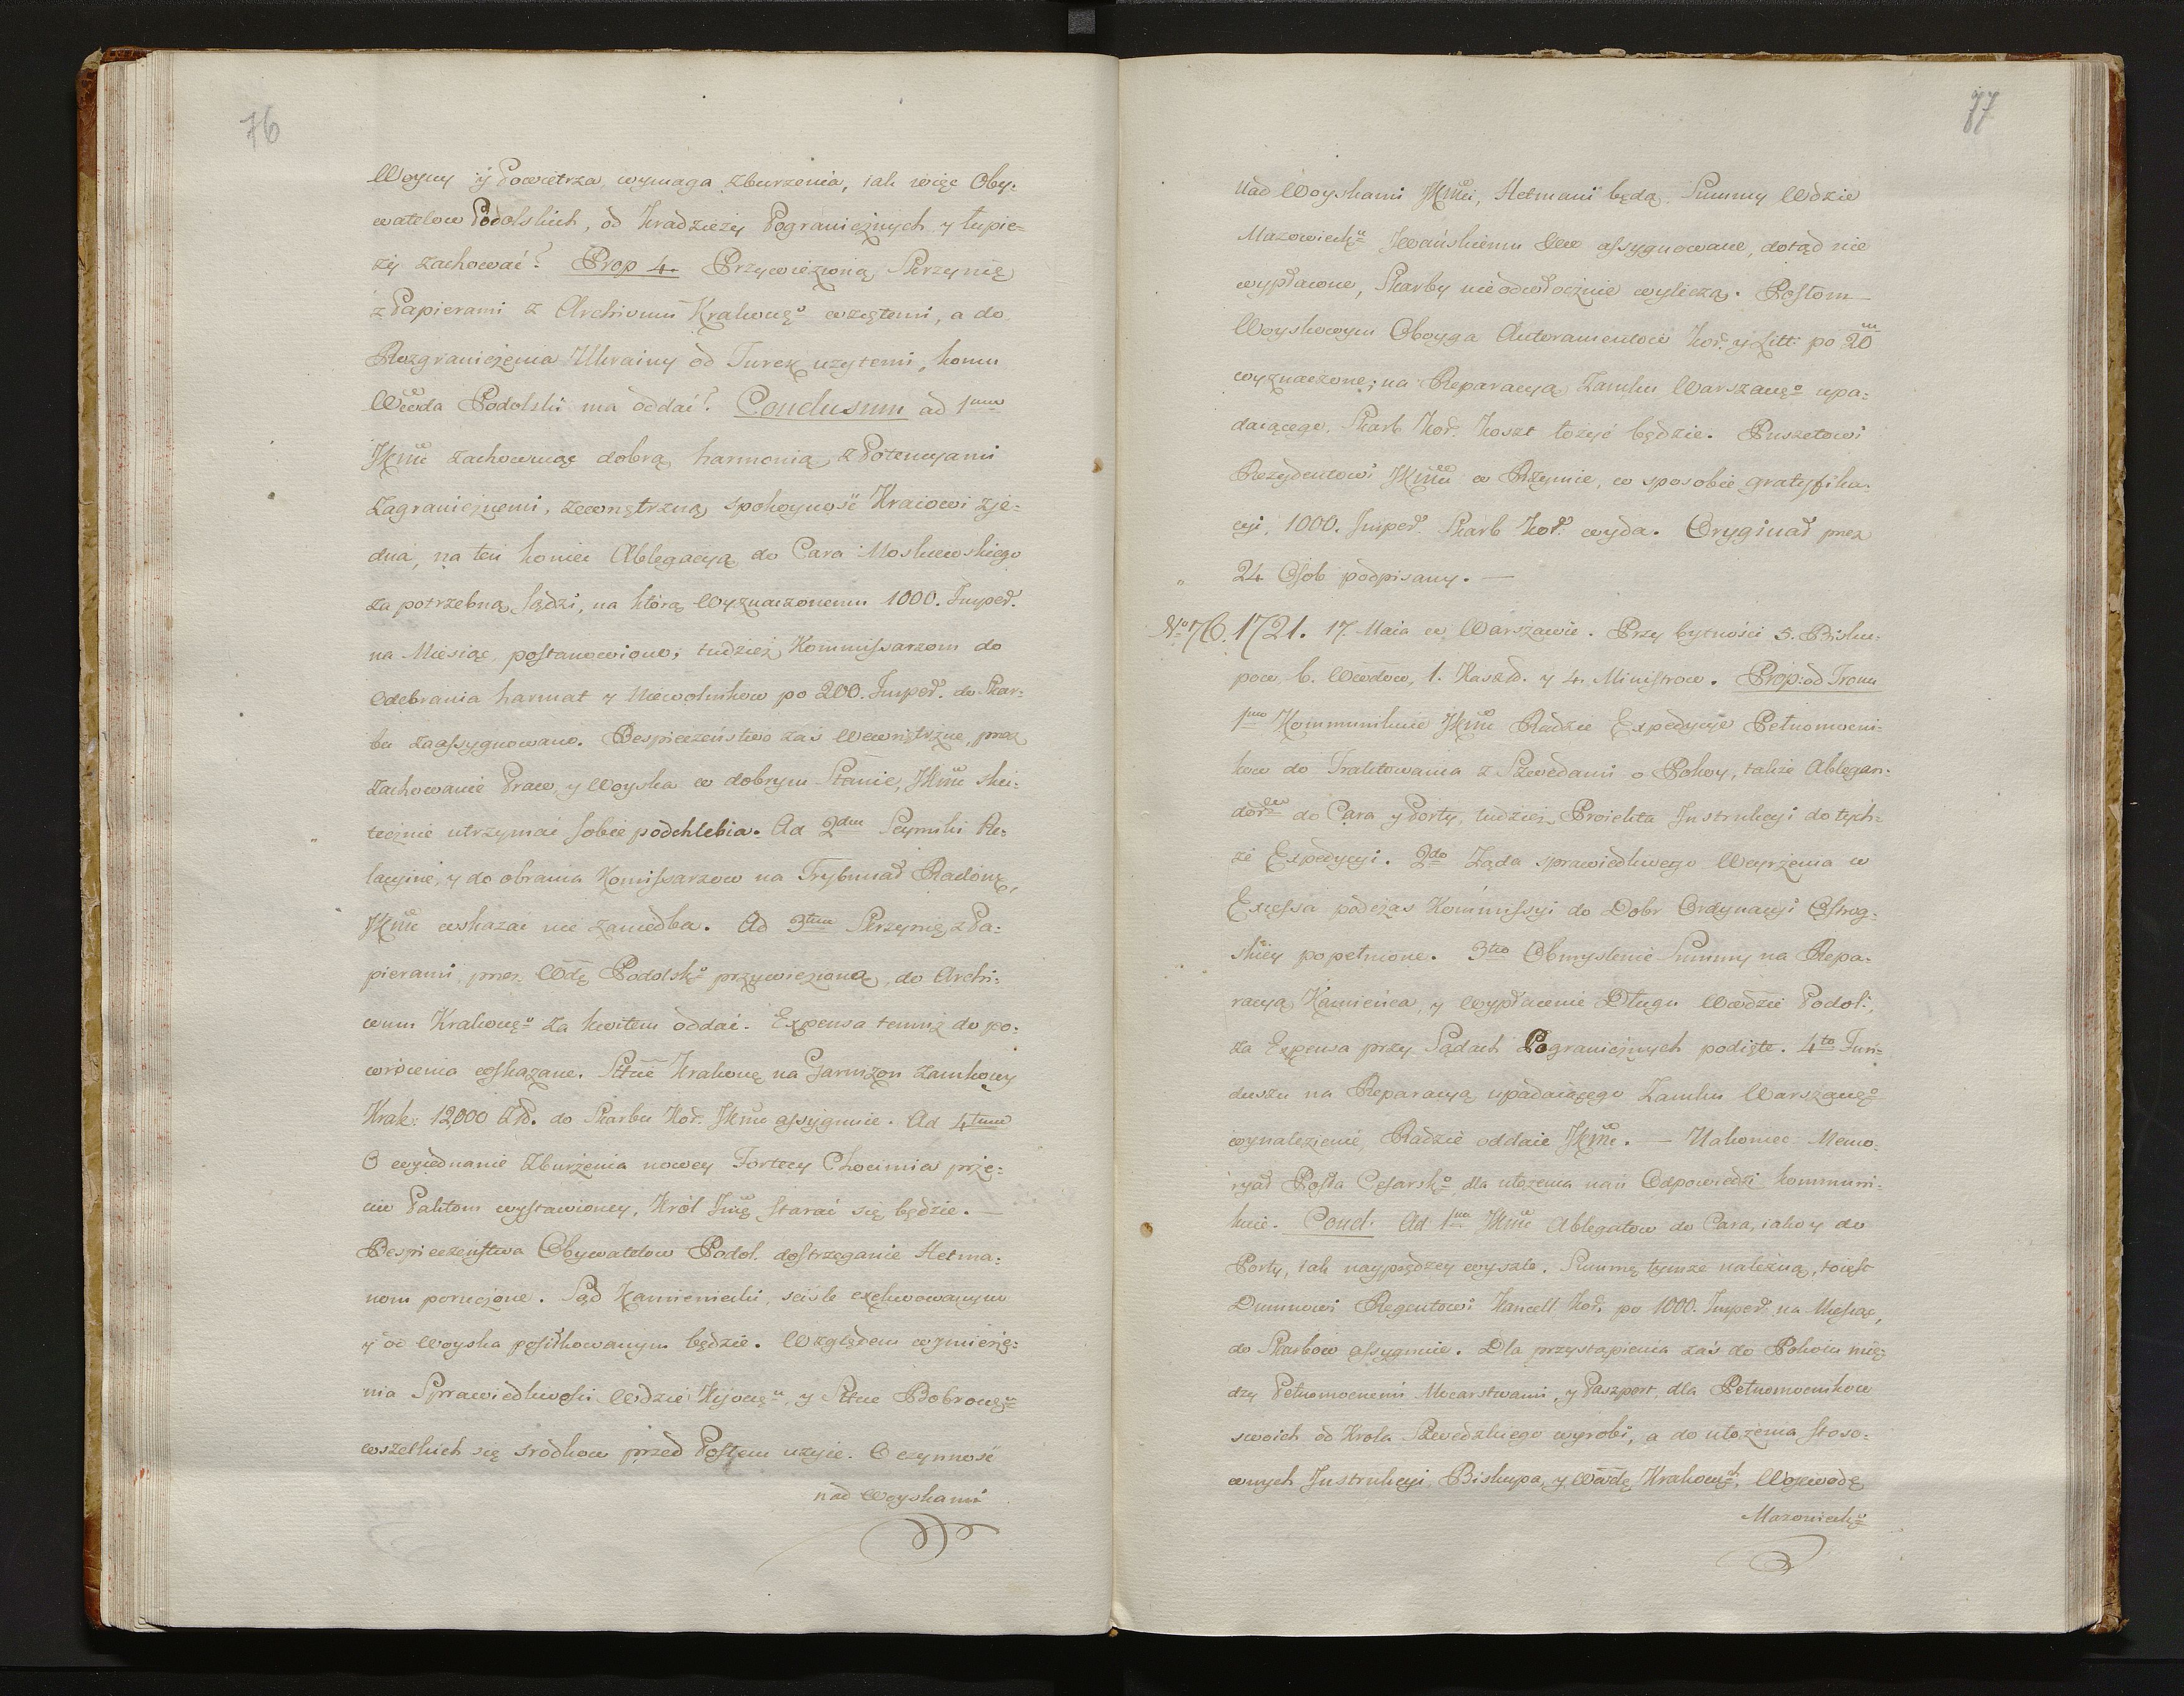 76
Woyny y Powietrza, wymaga zburzenia, iak więc Oby-
watelow Podolskich, od Kradzieży Pogranicznych y łupie-
ży zachować? Prop 4. Przywiezioną Skrzynię
z Papierami z Archivum Krakowgo wziętemi, a do
Rozgraniczenia Ukrainy od Turek użytemi, komu
Wwda Podolski ma oddać? Conclusum ad 1mum
JKMć zachowuiąc dobrą harmonią z Potencyami
Zagranicznemi, zewnętrzną spokoyność Kraiowi zje-
dna, na ten koniec Ablegacyą do Cara Moskiewskiego
za potrzebną sądzi, na którą Wyznaczonemu 1000. Imper.
na Miesiąc, postanowiono; tudzież Kommissarzom do
Odebrania harmat y Niewolnikow po 200. Imper. do Skar-
bu zaassygnowano. Bespieczeństwo zaś Wewnętrzne, przez
zachowanie Praw, y Woyska w dobrym Stanie, JKMć sku-
tecznie utrzymać sobie podchlebia. Ad 2dum Seymiki Re-
lacyine, y do obrania Komissarzow na Trybunał Radom,
JKMć wskazać nie zaniedba. Ad 3tium Skrzynię z Pa-
pierami, przez Wdę Podolskgo przywiezioną, do Archi-
wum Krakowgo za kwitem oddać. Expensa temuż do po-
wrócenia wskazane. Sttnie Krakowę na Garnizon zamkowy
Krak: 12,000 Zł. do Skarbu Kor. JKMć assygnuie. Ad 4tum
O wyiednanie Zburżenia nowey Fortecy Chocimia prze-
ciw Paktom wystawioney, Król Jmć starać się będzie. —
Bespieczeństwa Obywatelow Podol. dostrzeganie Hetma-
nom poruczone. Sąd Kamieniecki, ściśle exekwowanym
y od Woyska posiłkowanym będzie. Względem wymierze-
nia Sprawiedliwości Wdzie Kijowgu, y Sttnie Bobrowgu
wszelkich się srodkow przed Postem użyie. O czynność
nad Woyskami
77
nad Woyskami JKMci, Hetmani będą, Summy Wdzie
Mazowieckgu assygnowane, dotąd nie
wypłacone, Skarby nieodwłocznie wyliczą. Posłom
Woyskowym Oboyga Autoramentow Kor. y Litt: po 20m
wyznaczone; na Reparacyą Zamku Warszawgo upa-
daiącego, Skarb Kor. koszt łożyć będzie. Puszetowi
Rezydentowi JKMci w Rzymie, w sposobie gratyfika-
cyi, 1000. Imper. Skarb Kor. wyda. Oryginał przez
24 Osob podpisany. —
No 76. 1721. 17. Maia w Warszawie. Przy bytności 5. Bisku-
pow, 6. Wwdow, 1. Kaszd. y 4. Ministrow. Prop: od Tronu
1mo Kommunikuie JKMć Radzie Expedycye Pełnomocni-
kow do Traktowania z Szwedami o Pokoy, także Ablegan-
do Cara y Porty, tudzież Proiekta Instrukcyi do tych-
że Expedycyi. 2do Żąda sprawiedliwego Weyrzenia w
Excessa podczas Kommissyi do Dobr Ordynacyi Ostrog-
skiey popełnione. 3tio Obmyslenie Summy na Repa-
racyą Kamieńca, y Wypłacenie Długu Wwdzie Podol:,
za Expensa przy Sądach Pogranicznych podięte. 4to Fun-
duszu na Reparacyą upadaiącego Zamku Warszawgo
wynalezienie, Radzie oddaie JKMć. — Nakoniec Memo-
ryał Posła Cesarskgo dla ułożenia nań Odpowiedzi kommuni-
kuie. Concl: Ad 1mum JKMć Ablegatow do Cara, iako y do
Porty, iak nayprędzey wyszle. Summę tymże należną, toiest
Dumnowi Regentowi Kancell Kor. po 1000. Imper. na Miesiąc,
do Skarbow assygnuie. Dla przystąpienia zaś do Pokoiu mię-
dzy Pełnomocnemi Mocarstwami, y Paszport, dla Pełnomocnikow
swoich od Krola Szwedzkiego wyrobi, a do ułożenia stoso-
wnych Instrukcyi, Biskupa, y Wwdę Krakowch, Wojewodę
Mazowieckgo